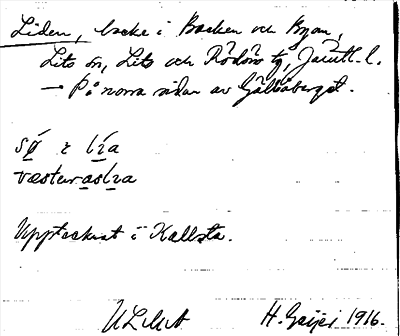 Liden, backe i Backen och Byom,
Lits sn, Lits och Rödöns tg, Jämtl. l.
— På norra sidan av Gällöberget.
sø̱ r li̱a
væstəra̱sli̱a
Upptecknat i Kallsta.
ULMA H. Geijer 1916.